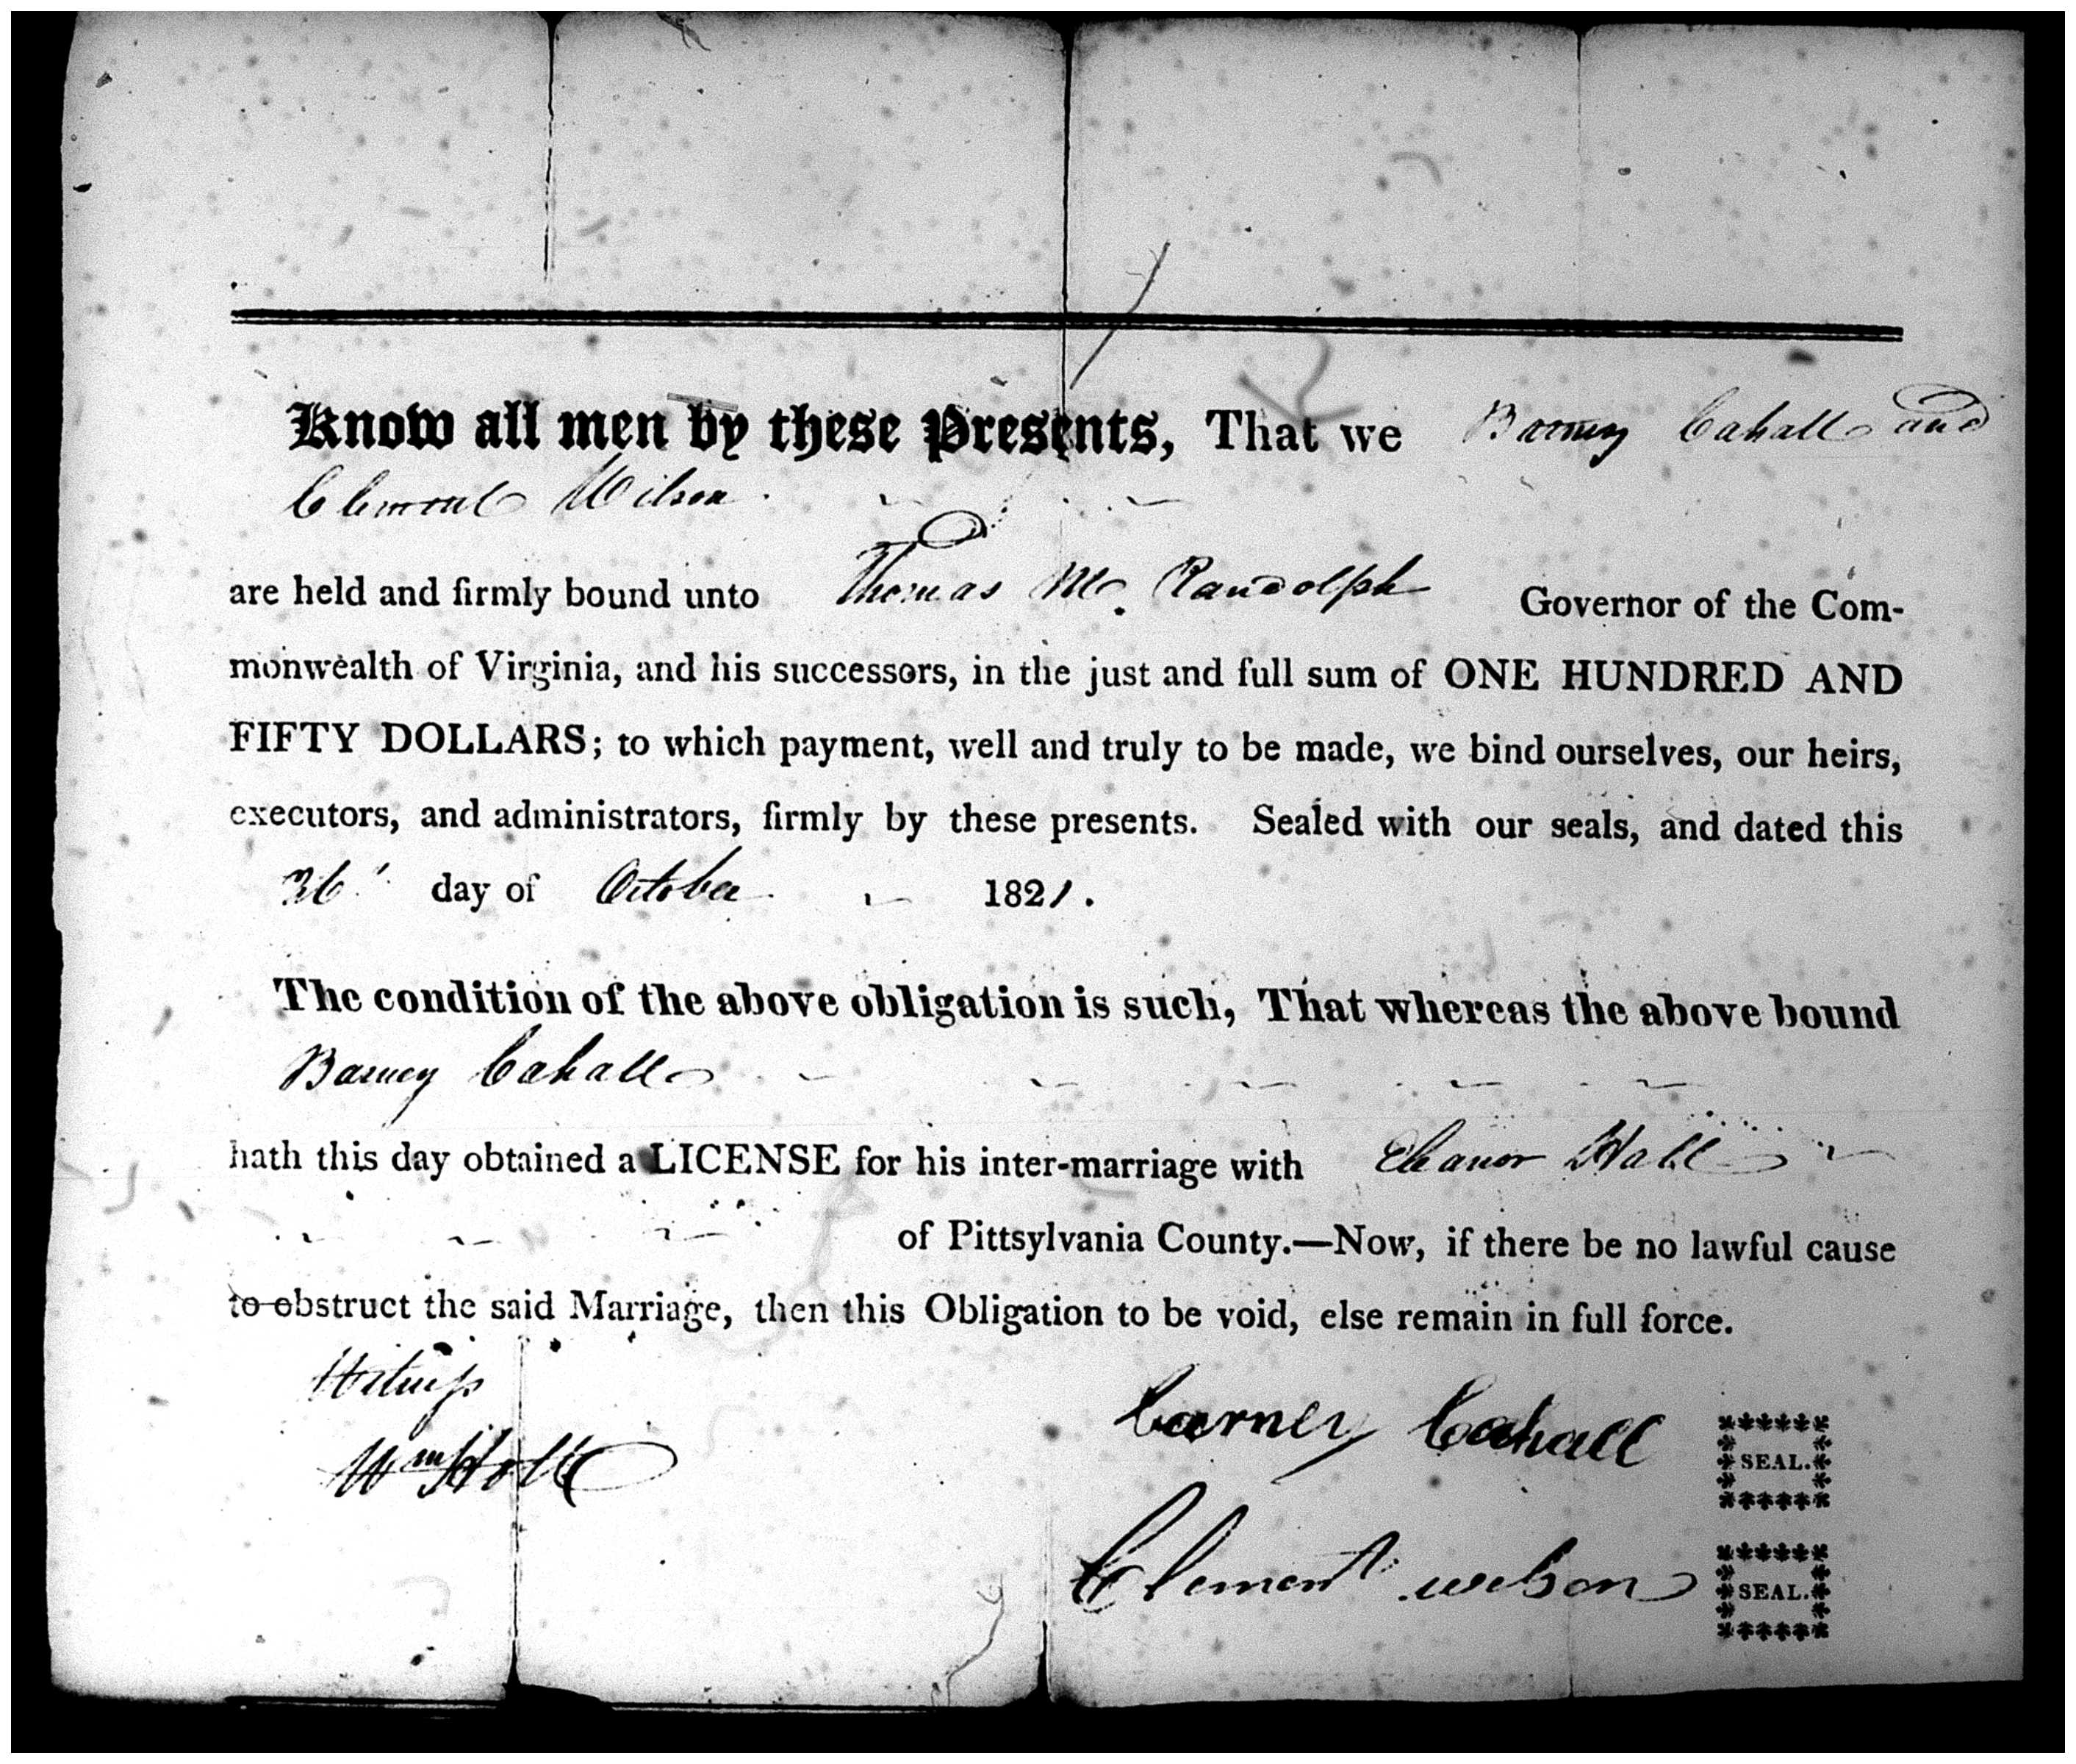 Know all men by these Presents, That we Barney Cahall and
Clement Wilson
are held and firmly bound unto Thomas M. Randolph Governor of the Com-
monwealth of Virginia, and his successors, in the just and full sum of ONE HUNDRED AND
FIFTY DOLLARS; to which payment, well and truly to be made, we bind ourselves, our heirs,
executors, and administrators, firmly by these presents. Sealed with our seals, and dated this
26' day of October 1821.
The condition of the above obligation is such, That whereas the above bound
Barney Cahall
hath this day obtained a LICENSE for his inter-marriage with Eleanor Hall
of Pittsylvania County.—Now, if there be no lawful cause
to obstruct the said Marriage, then this Obligation to be void, else remain in full force.
Witness
Wm
barney Cahall SEAL.
Clement wilson SEAL.